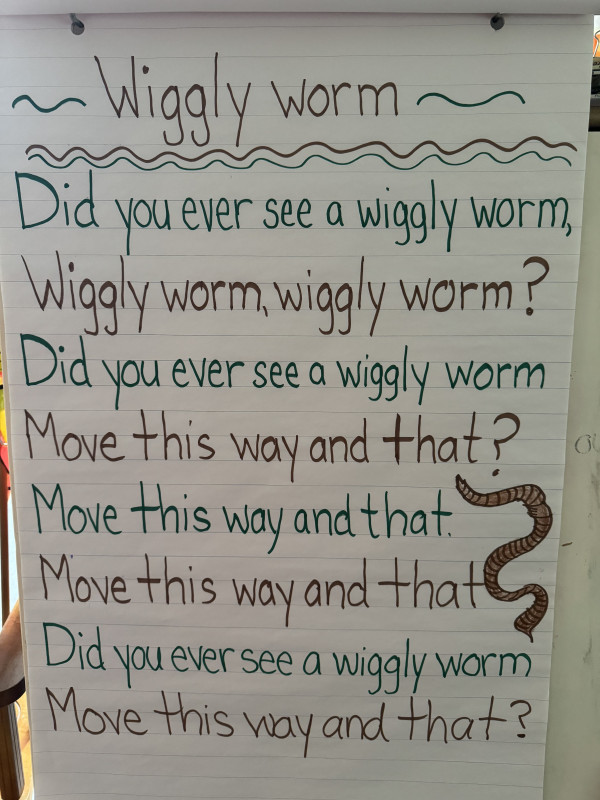 Wiggly worm
Did you ever see a wiggly worm,
Wiggly worm, wiggly worm?
Did you ever see a wiggly worm
Move this way and that?
Move this way and that.
Move this way and that
Did you ever see a wiggly worm
Move this way and that?